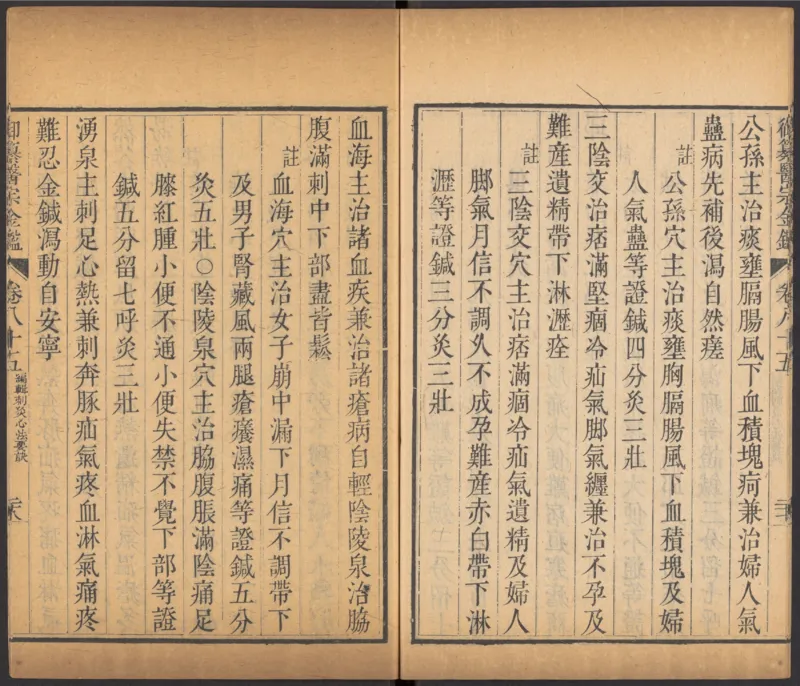 公孫主治痰壅膈腸風下血積塊疴兼治婦人氣
蠱病先補後瀉自然瘥
註
公孫穴主治痰壅胸膈腸風下血積塊及婦
人氣蠱等證鍼四分灸三壯
三陰交治痞滿堅痼冷疝氣脚氣纒兼治不孕及
難産遺精帶下淋瀝痊
註
三陰交穴主治痞滿痼冷疝氣遺精及婦人
脚氣月信不調久不成孕難産赤白帶下淋
瀝等證鍼三分灸三壯
血海主治諸血疾兼治諸瘡病自輕陰陵泉治脇
腹滿刺中下部盡皆鬆
註
血海穴主治女子崩中漏下月信不調帶下
及男子腎藏風兩腿瘡癢濕痛等證鍼五分
灸五壯○陰陵泉穴主治脇腹脹滿陰痛足
膝紅腫小便不通小便失禁不覺下部等證
鍼五分留七呼灸三壯
湧泉主刺足心熱兼刺奔豚疝氣疼血淋氣痛疼
難忍金鍼瀉動自安寧
御纂醫宗金鑑
卷八十五
編輯刺灸心法要訣